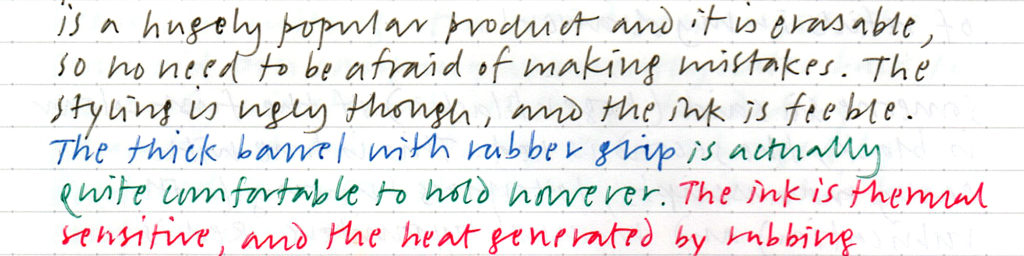 is a hugely popular product and it is erasable,
so no need to be afraid of making mistakes. The
styling is ugly though, and the ink is feeble.
The thick barrel with rubber grip is actually
quite comfortable to hold however. The ink is thermal
sensitive, and the heat generated by rubbing